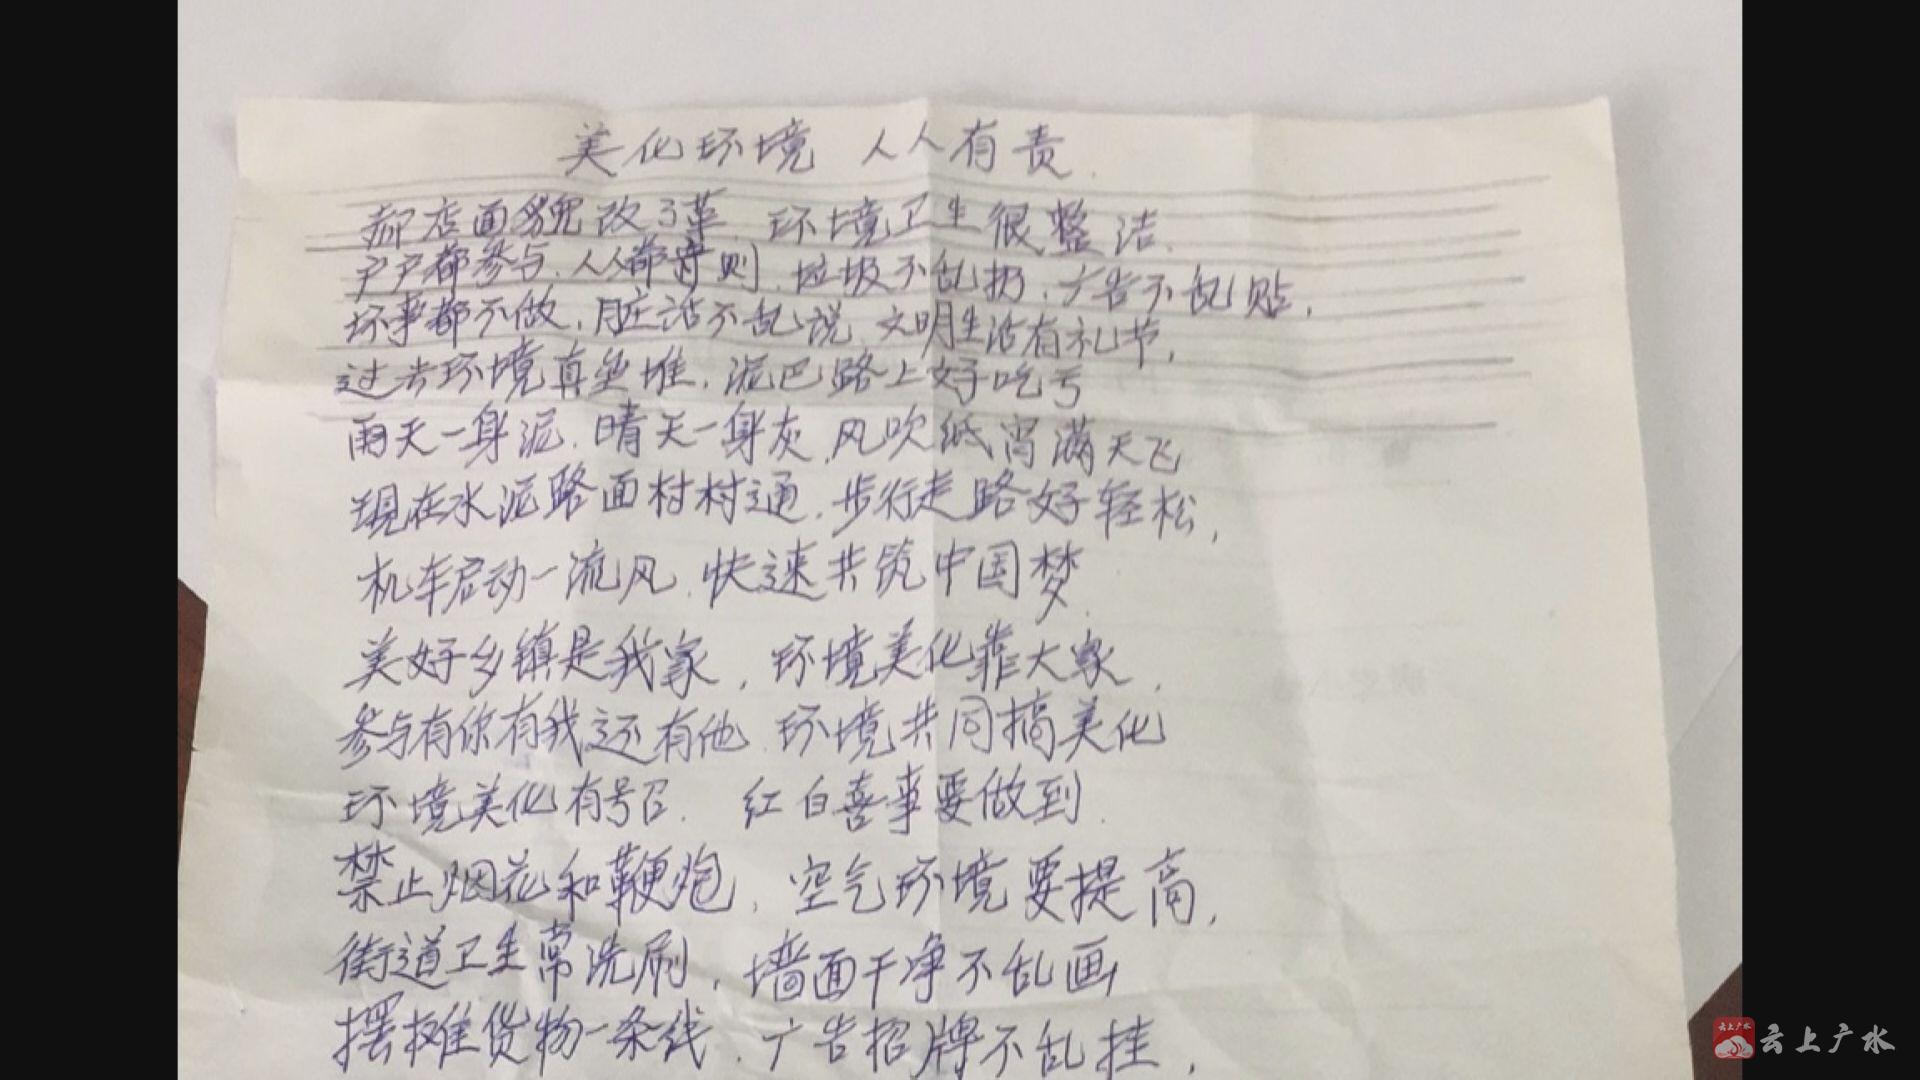 美化环境 人人有责.
郝店面貌改了革,环境卫生很整洁.
户户都参与,人人都守则,垃圾不乱扔,广告不乱贴,
坏事都不做,脏话不乱说,文明生活有礼节,
过去环境真垒堆,泥巴路上好吃亏
雨天一身泥,晴天一身灰,风吹纸宵满天飞
现在水泥路面村村通,步行走路好轻松,
机车启动一流风,快速共筑中国梦.
美好乡镇是我家,环境美化靠大家,
参与有你有我还有他,环境共同搞美化
环境美化有号召. 红白喜事要做到.
禁止烟花和鞭炮,空气环境要提高,
街道卫生常洗刷,墙面干净不乱画
摆摊货物一条线,广告招牌不乱挂,
云上广水
云上广水